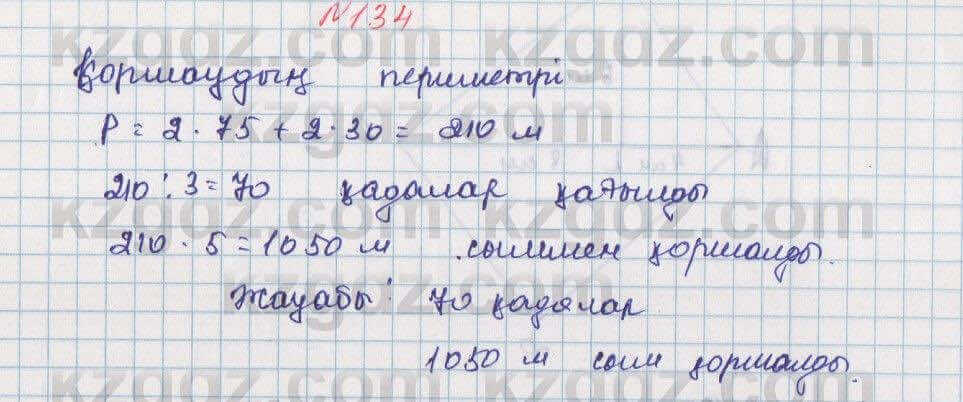 №134
Қоршаудың периметрі
P = 2 · 75 + 2 · 30 = 210 м
210 : 3 = 70 қадалар қағылды
210 · 5 = 1050 м сыммен қоршалды.
Жауабы: 70 қадалар
1050 м сым қоршалды.
kzgdz.com